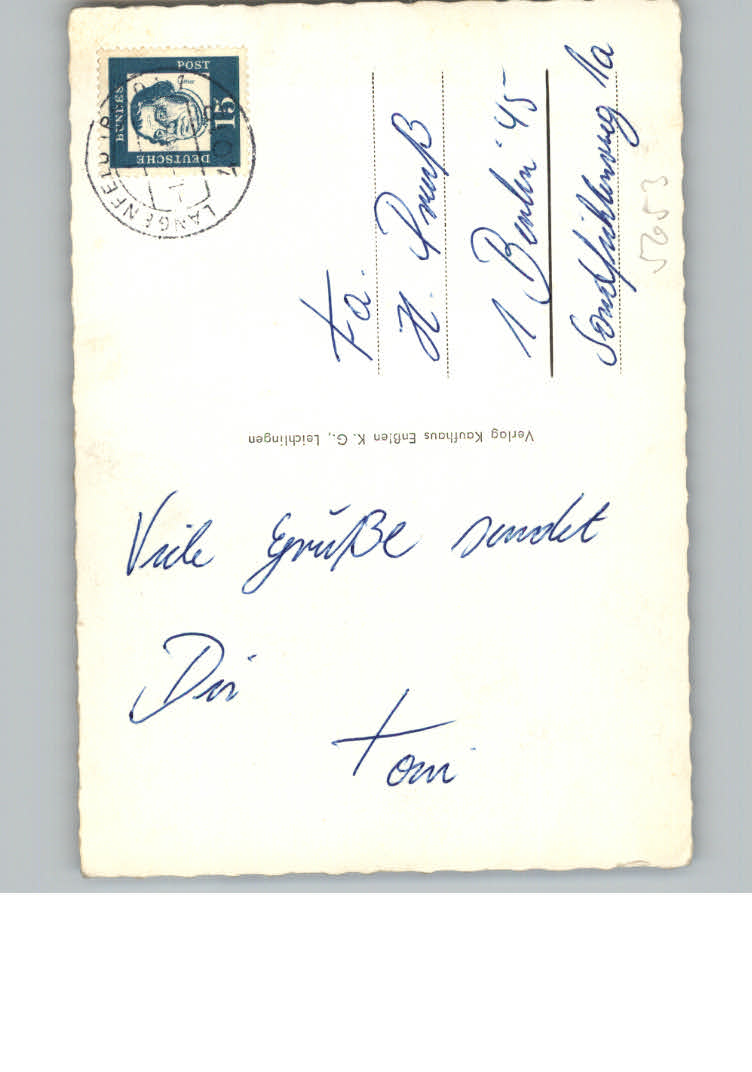 DEUTSCHE
BUNDES
POST
15
LANGENFELD (R
Fa.
H. Preuß
1 Berlin 45
1a
5653
Verlag Kaufhaus Enßlen K. G., Leichlingen
Viele Grüße sendet
Dir
Toni